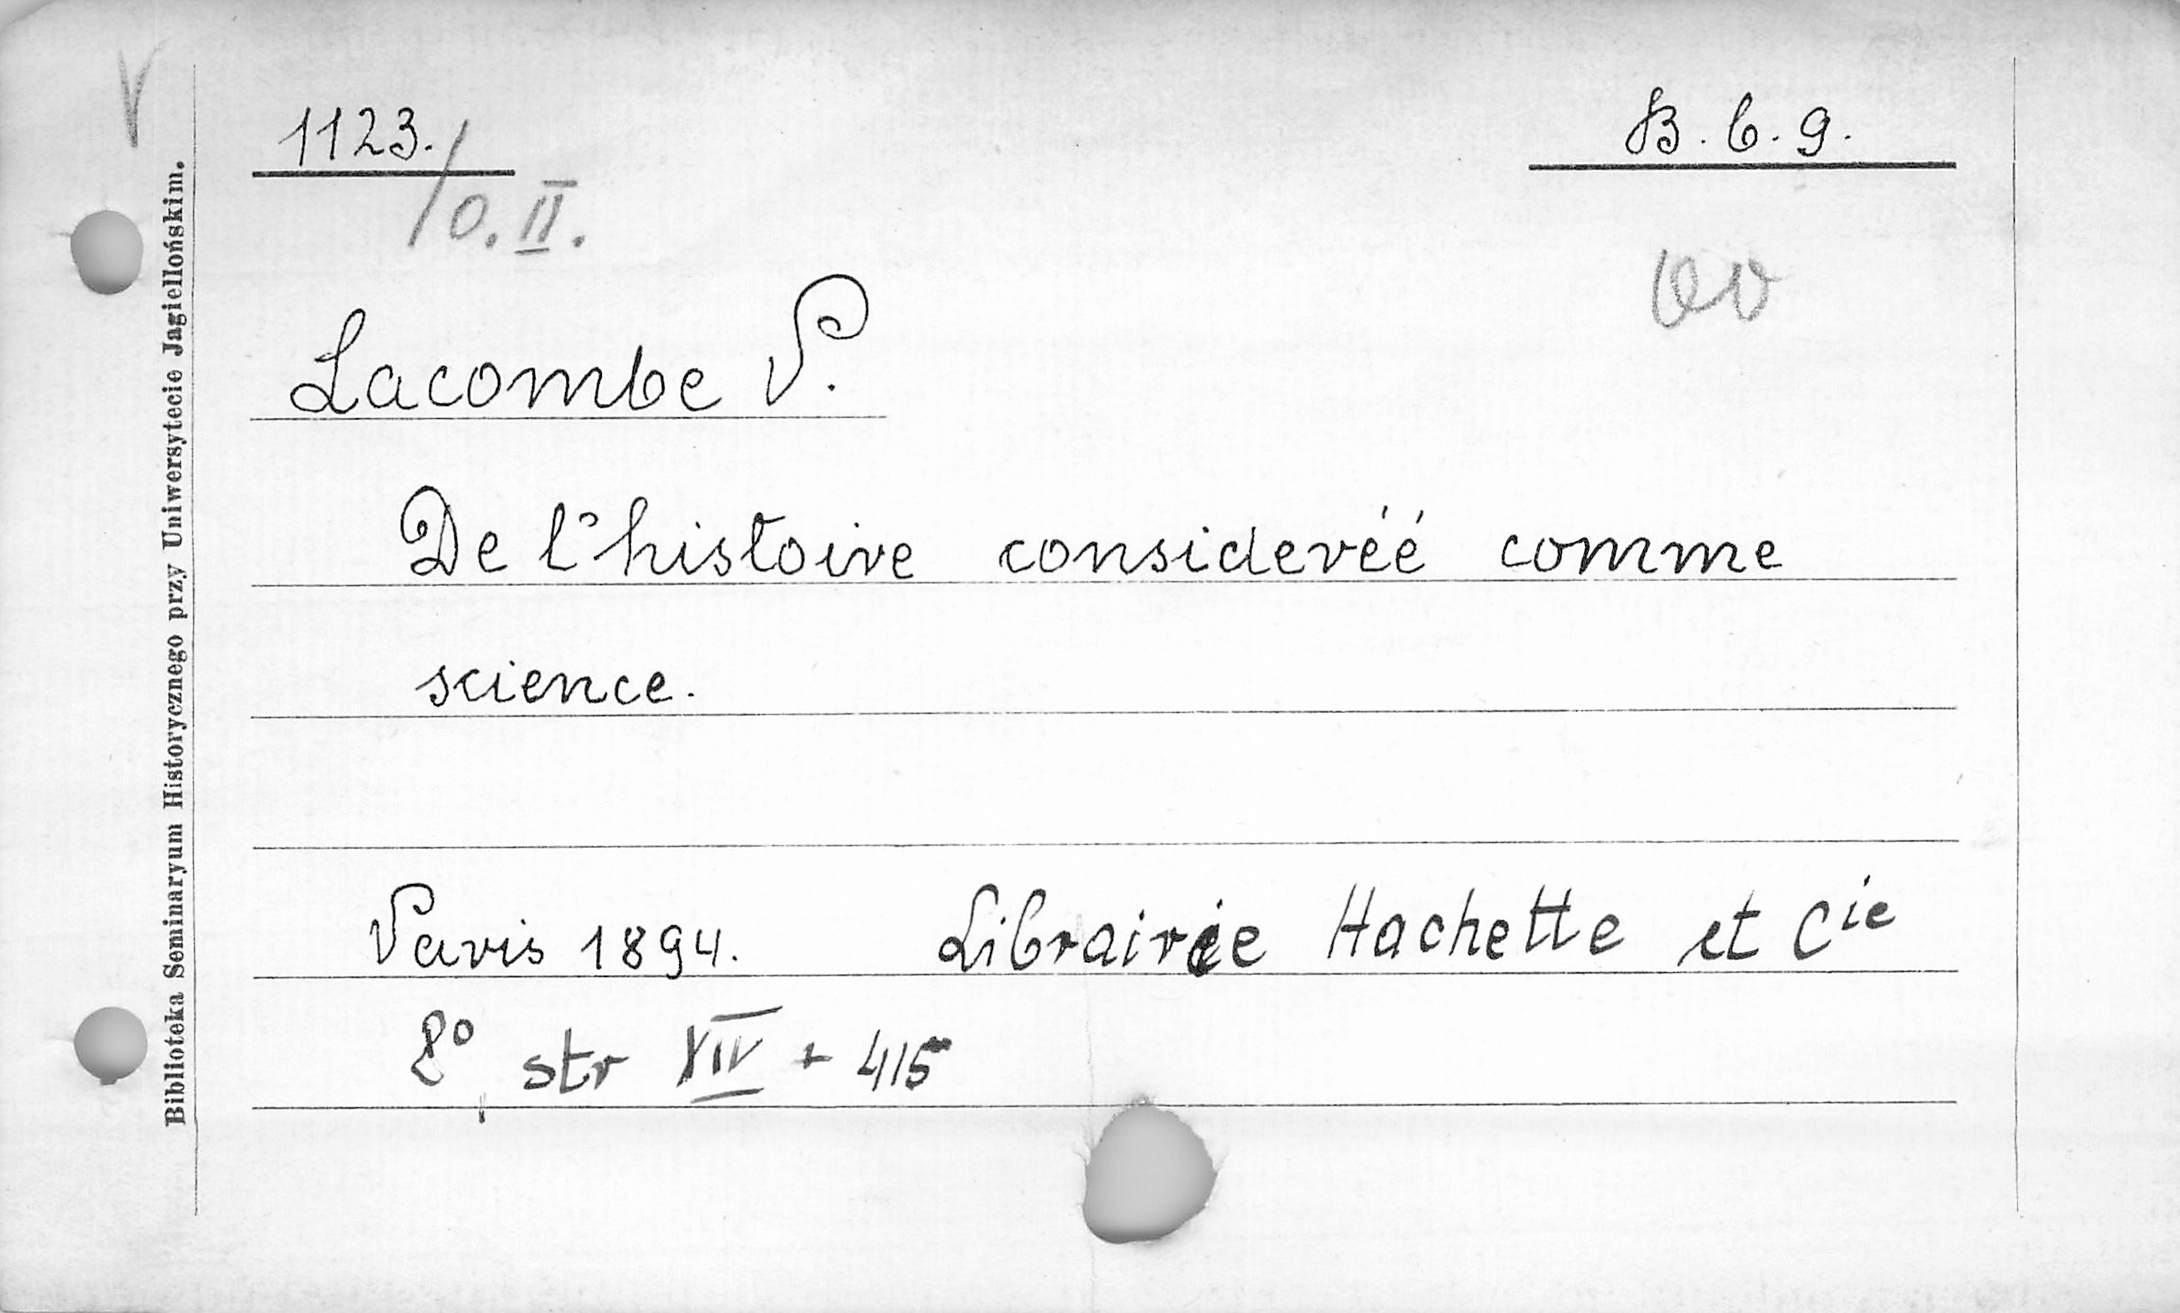 V
1123./O.II.
B. b. g.
Lacombe P.
De l'histoire consideréé comme
science.
Paris 1894. Librairie Hachette et Cie
8° str XIV + 415
Biblioteka Seminaryum Historycznego przy Uniwersytecie Jagiellońskim.